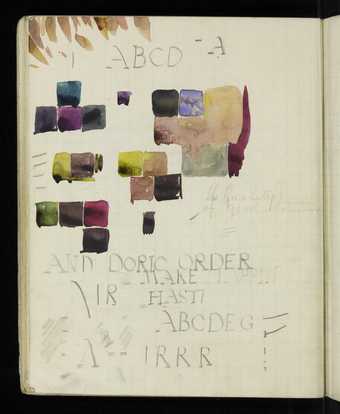 ABCD - A
AND DORIC ORDER
MAKE
VIR HASTI
ABCDEG
A - - IRRR